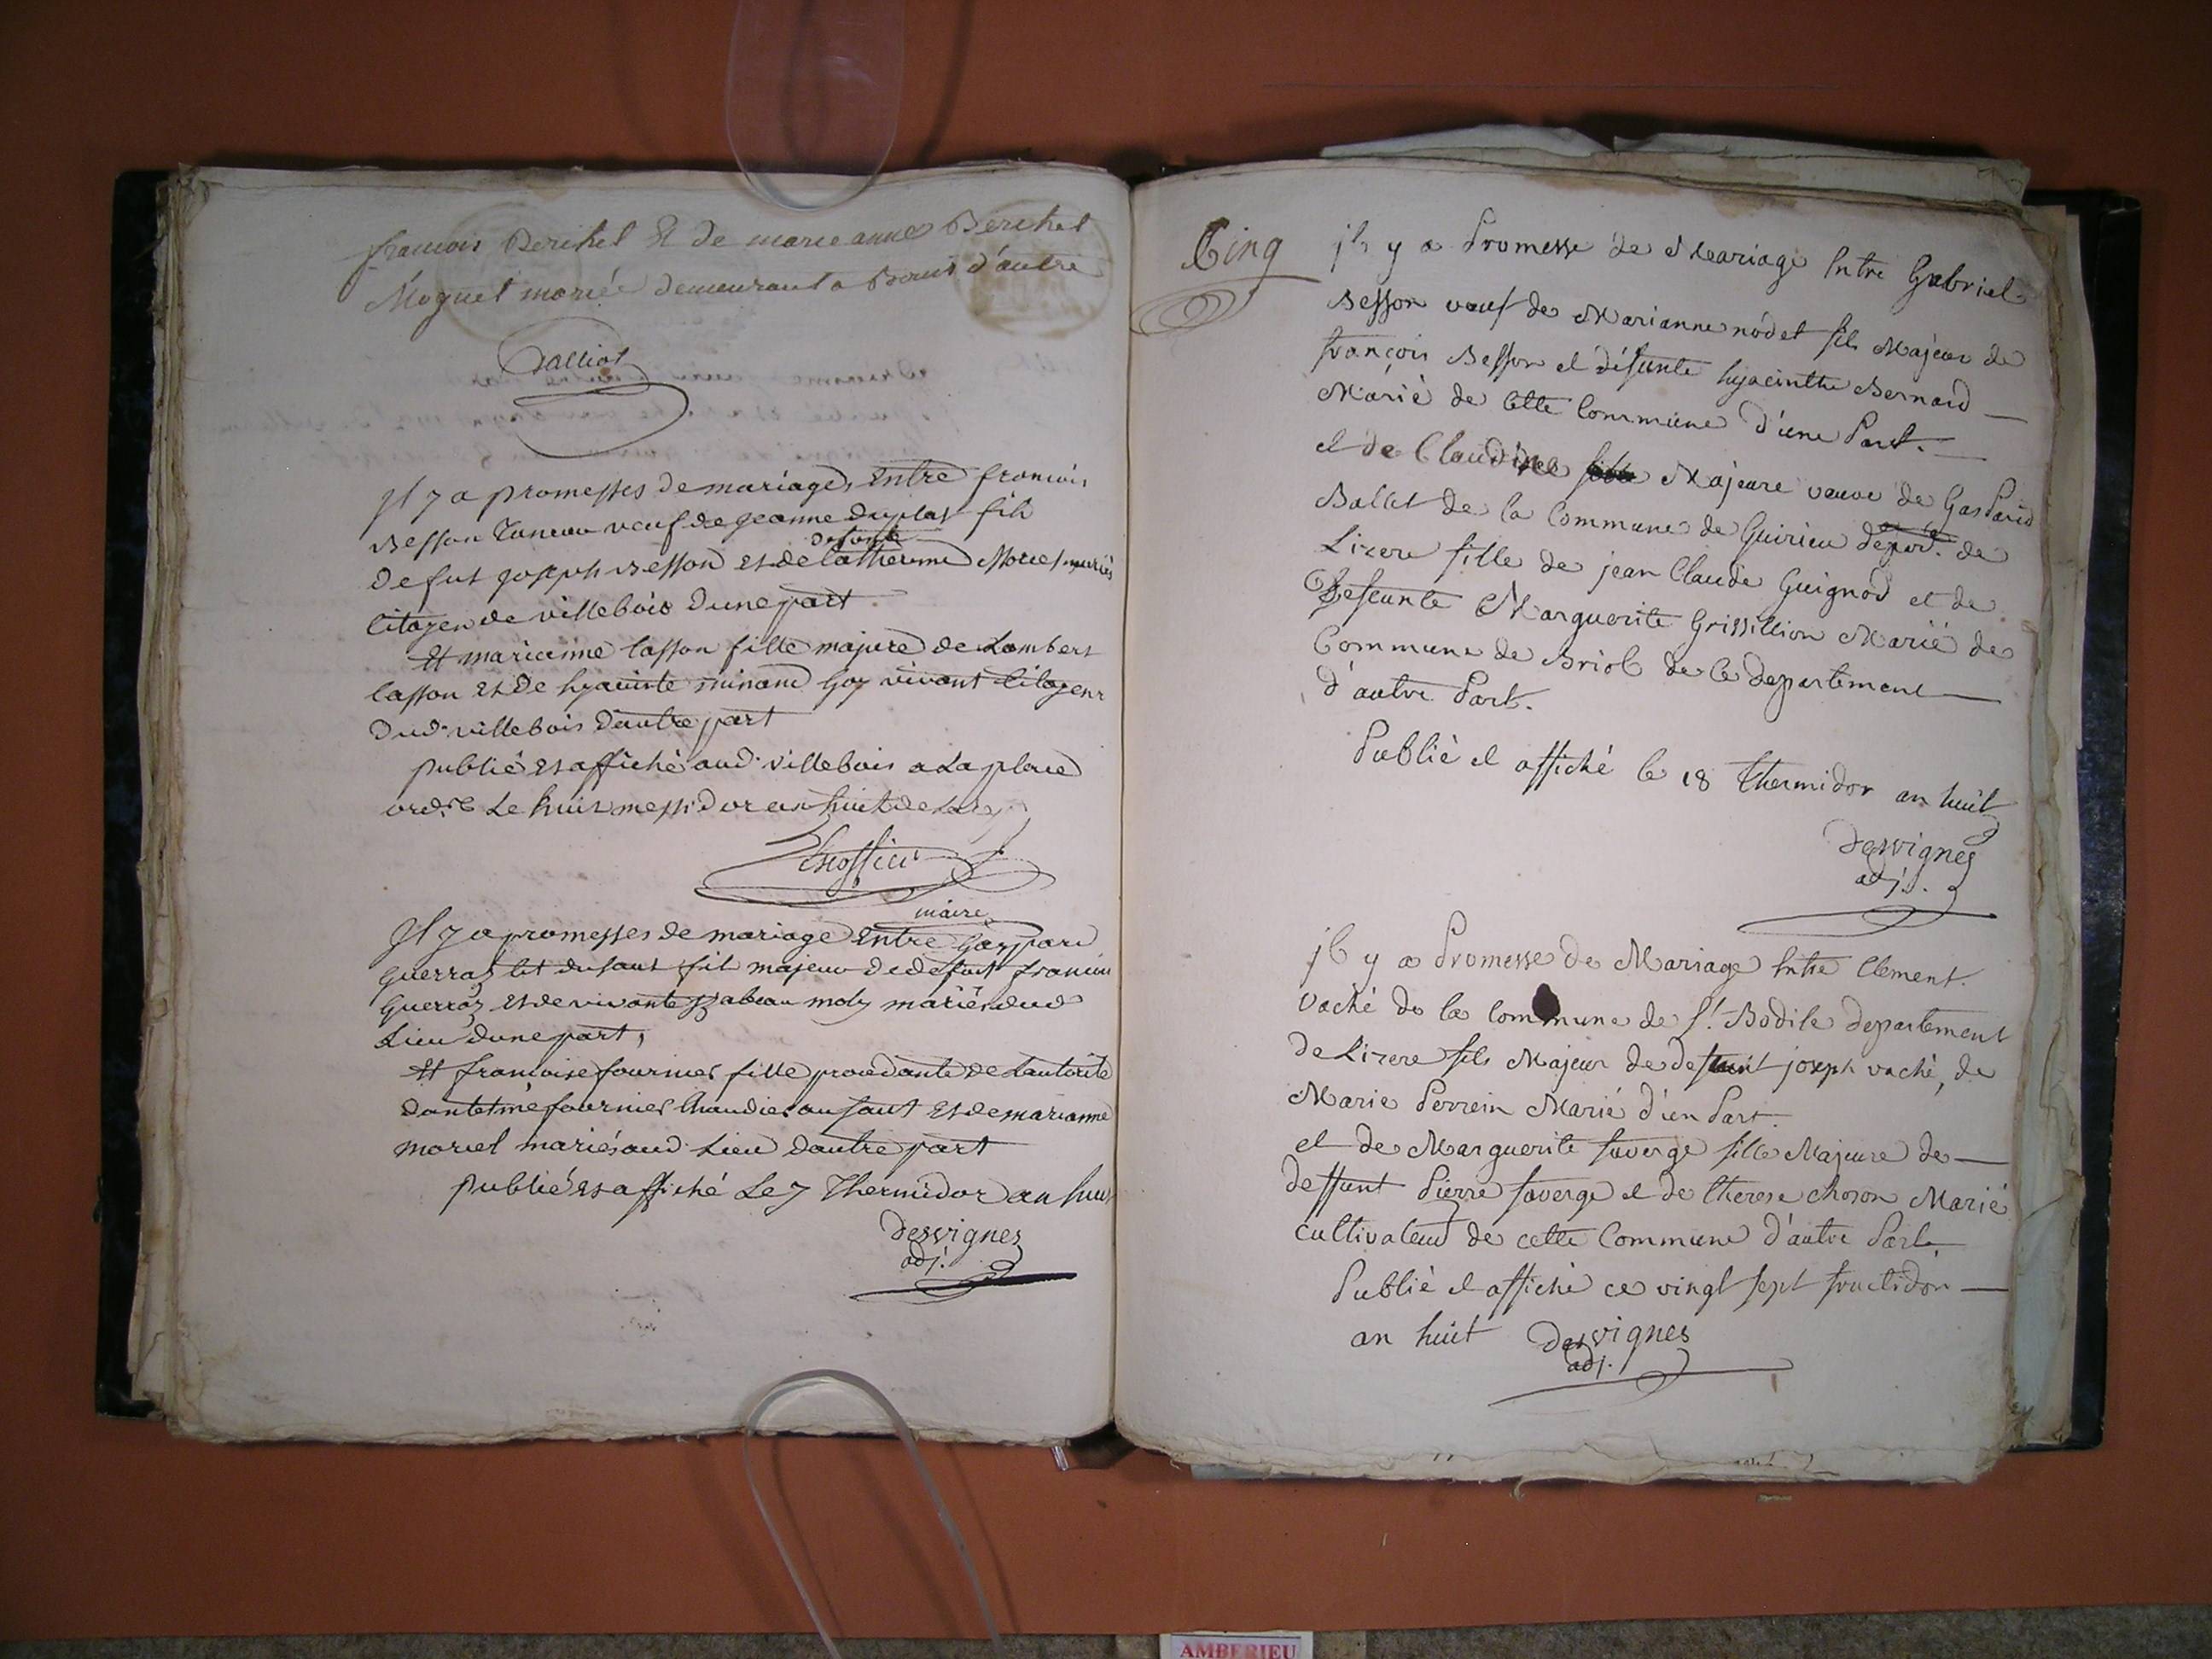 francois Berthet Et de marie anne Berthet
Moguet mariée demeurant a d'autre
Dalliot
Il y a promesses de mariage, Entre francois
Besson veuf de jeanne duplat fils
defunte
De fut joseph Besson Et de Catherinne Morel mariés
Citoyen de villebois dune part
Et marieanne Casson fille majure de Lambert
Casson Et de hyacinte Goy vivant Citoyens
Dud. villebois Dautre part
publié Et affiché aud. villebois a La place
ord.re Le huit messidor an huit de La rep
maire
Il y a promesses de mariage Entre Gaspard
Guerraz du saut fils majeur de defunt francois
Guerraz Et de vivante moly mariés dud
Lieu dune part,
Et francoise fournier fille procedante de Lautorité
dantelme fournier Chaudier au saut Et de marianne
morel mariés aud. Lieu dautre part
publié Et affiché Le 7 Thermidor an huit
Desvignes
adj.
Cinq
jl y a Promesse de Mariage Entre Gabriel
Besson veuf de Marianne nodet fils Majeur de
françois Besson et défunte hyacinthe Bernard
Marié de Cette Commune d'une Part.
et de Claudine Majeure veuve de Gaspard
Ballet de la Commune de Quirieu depar.t de
Lizere fille de jean Claude Guignod et de
Defeunte Marguerite Grissillion Marié de
Commune de Briol de Ce departement
d'autre Part.
Publié et affiché le 18 Thermidor an huit
Desvignes
adj.
jl y a Promesse de Mariage Entre Clement
vaché de la Commune de St. Bodile departement
de Lizere fils Majeur de defunt joseph vaché, de
Marie Perrein Marié d'un Part.
et de Marguerite faverge fille Majeure de
deffunt Pierre faverge et de therese choson Marié
cultivateur de cette Commune d'autre Part,
Publié et affiché ce vingt sept fructidor
an huit Desvignes
adj.
AMBERIEU